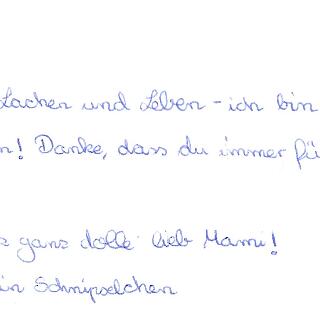 Lachen und Leben - ich bin
n! Danke, dass du immer fü
s ganz dolle lieb Mami!
in Schnipselchen